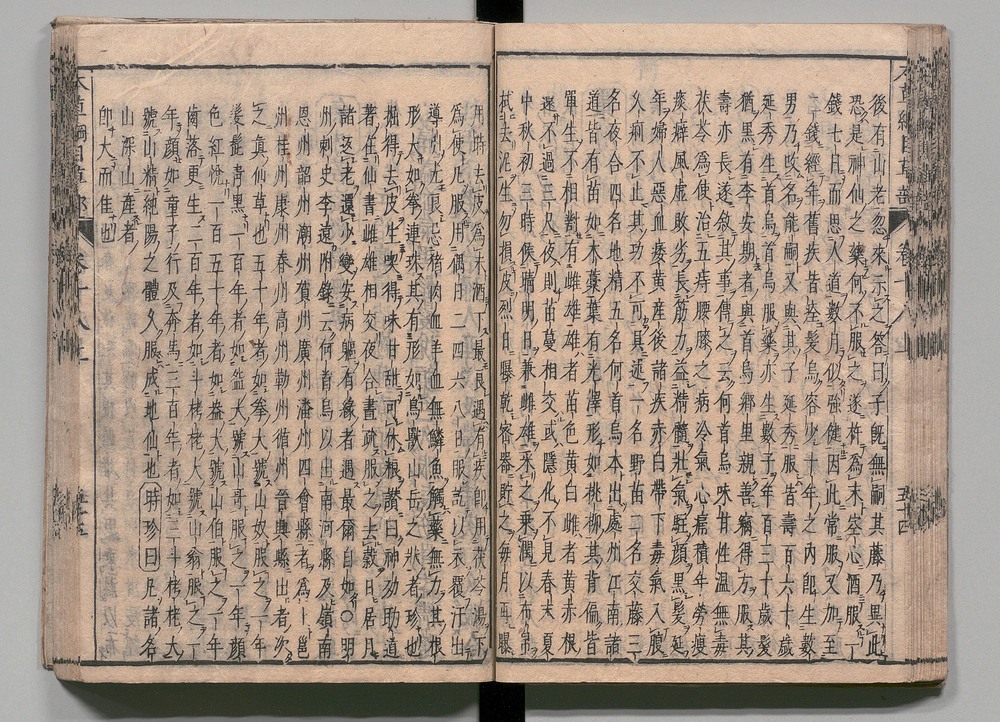 後有山老忽來示之答曰子旣無嗣其藤乃異此
恐是神仙之藥何不服之遂杵爲末空心酒服一
錢七日而思人道數月似強健因此常服又加至
二錢經年舊疾皆痊髮烏容少十年之內卽生數
男乃改名能嗣又與其子延秀服皆壽百六十歲
延秀生首烏首烏服藥亦生數子年百三十歲髮
猶黑有李安期者與首烏鄉里親善竊得方服其
壽亦長遂敘其事傳之云何首烏味甘性溫無毒
茯苓爲使治五痔腰膝之病冷氣心痛積年勞瘦
痰癖風虛敗劣長筋力益精髓壯氣駐顏黑髮延
年婦人惡血痿黃産後諸疾赤白帶下毒氣入腹
久痢不止其功不可具述一名野苗二名交藤三
名夜合四名地精五名何首烏本出處州江南諸
道皆有苗如木藁葉有光澤形如桃柳其背偏皆
單生不相對有雌雄雄者苗色黃白雌者黃赤根
遠不過三尺夜則苗蔓相交或隱化不見春末夏
中秋初三時候晴明日兼雌雄采之乘潤以布帛
拭去泥生勿損皮烈日曝乾密器貯之每月再曝
用時去皮爲末酒下最良遇有疾卽用茯苓湯下
爲使凡服用偶日二四六八日服訖以衣覆汗出
導引尤良忌猪肉血羊血無鱗魚觸藥無力其根
形大如拳連珠其有形如鳥獸山岳之狀者珍也
掘得去皮生喫得味甘甜可休粮讃曰神效助道
著在仙書雌雄相交夜合晝疏服之去穀日居月
諸返老還少變安病軀有緣者遇最爾自如○明
州刺史李遠附錄云何首烏以出南河縣及嶺南
恩州韶州潮州賀州廣州潘州四會縣者爲上邕
州桂州康州春州高州勒州循州晉興縣出者次
之眞仙草也五十年者如拳大號山奴服之一年
髮髭靑黑一百年者如盌大號山哥服之一年顏
色紅悅一百五十年者如盆大號山伯服之一年
齒落更生二百年者如斗栲栳大號山翁服之一
年顏如童子行及奔馬三百年者如三斗栲栳大
號山精純陽之體久服成地仙也時珍曰凡諸名
山深山產者
卽大而佳也